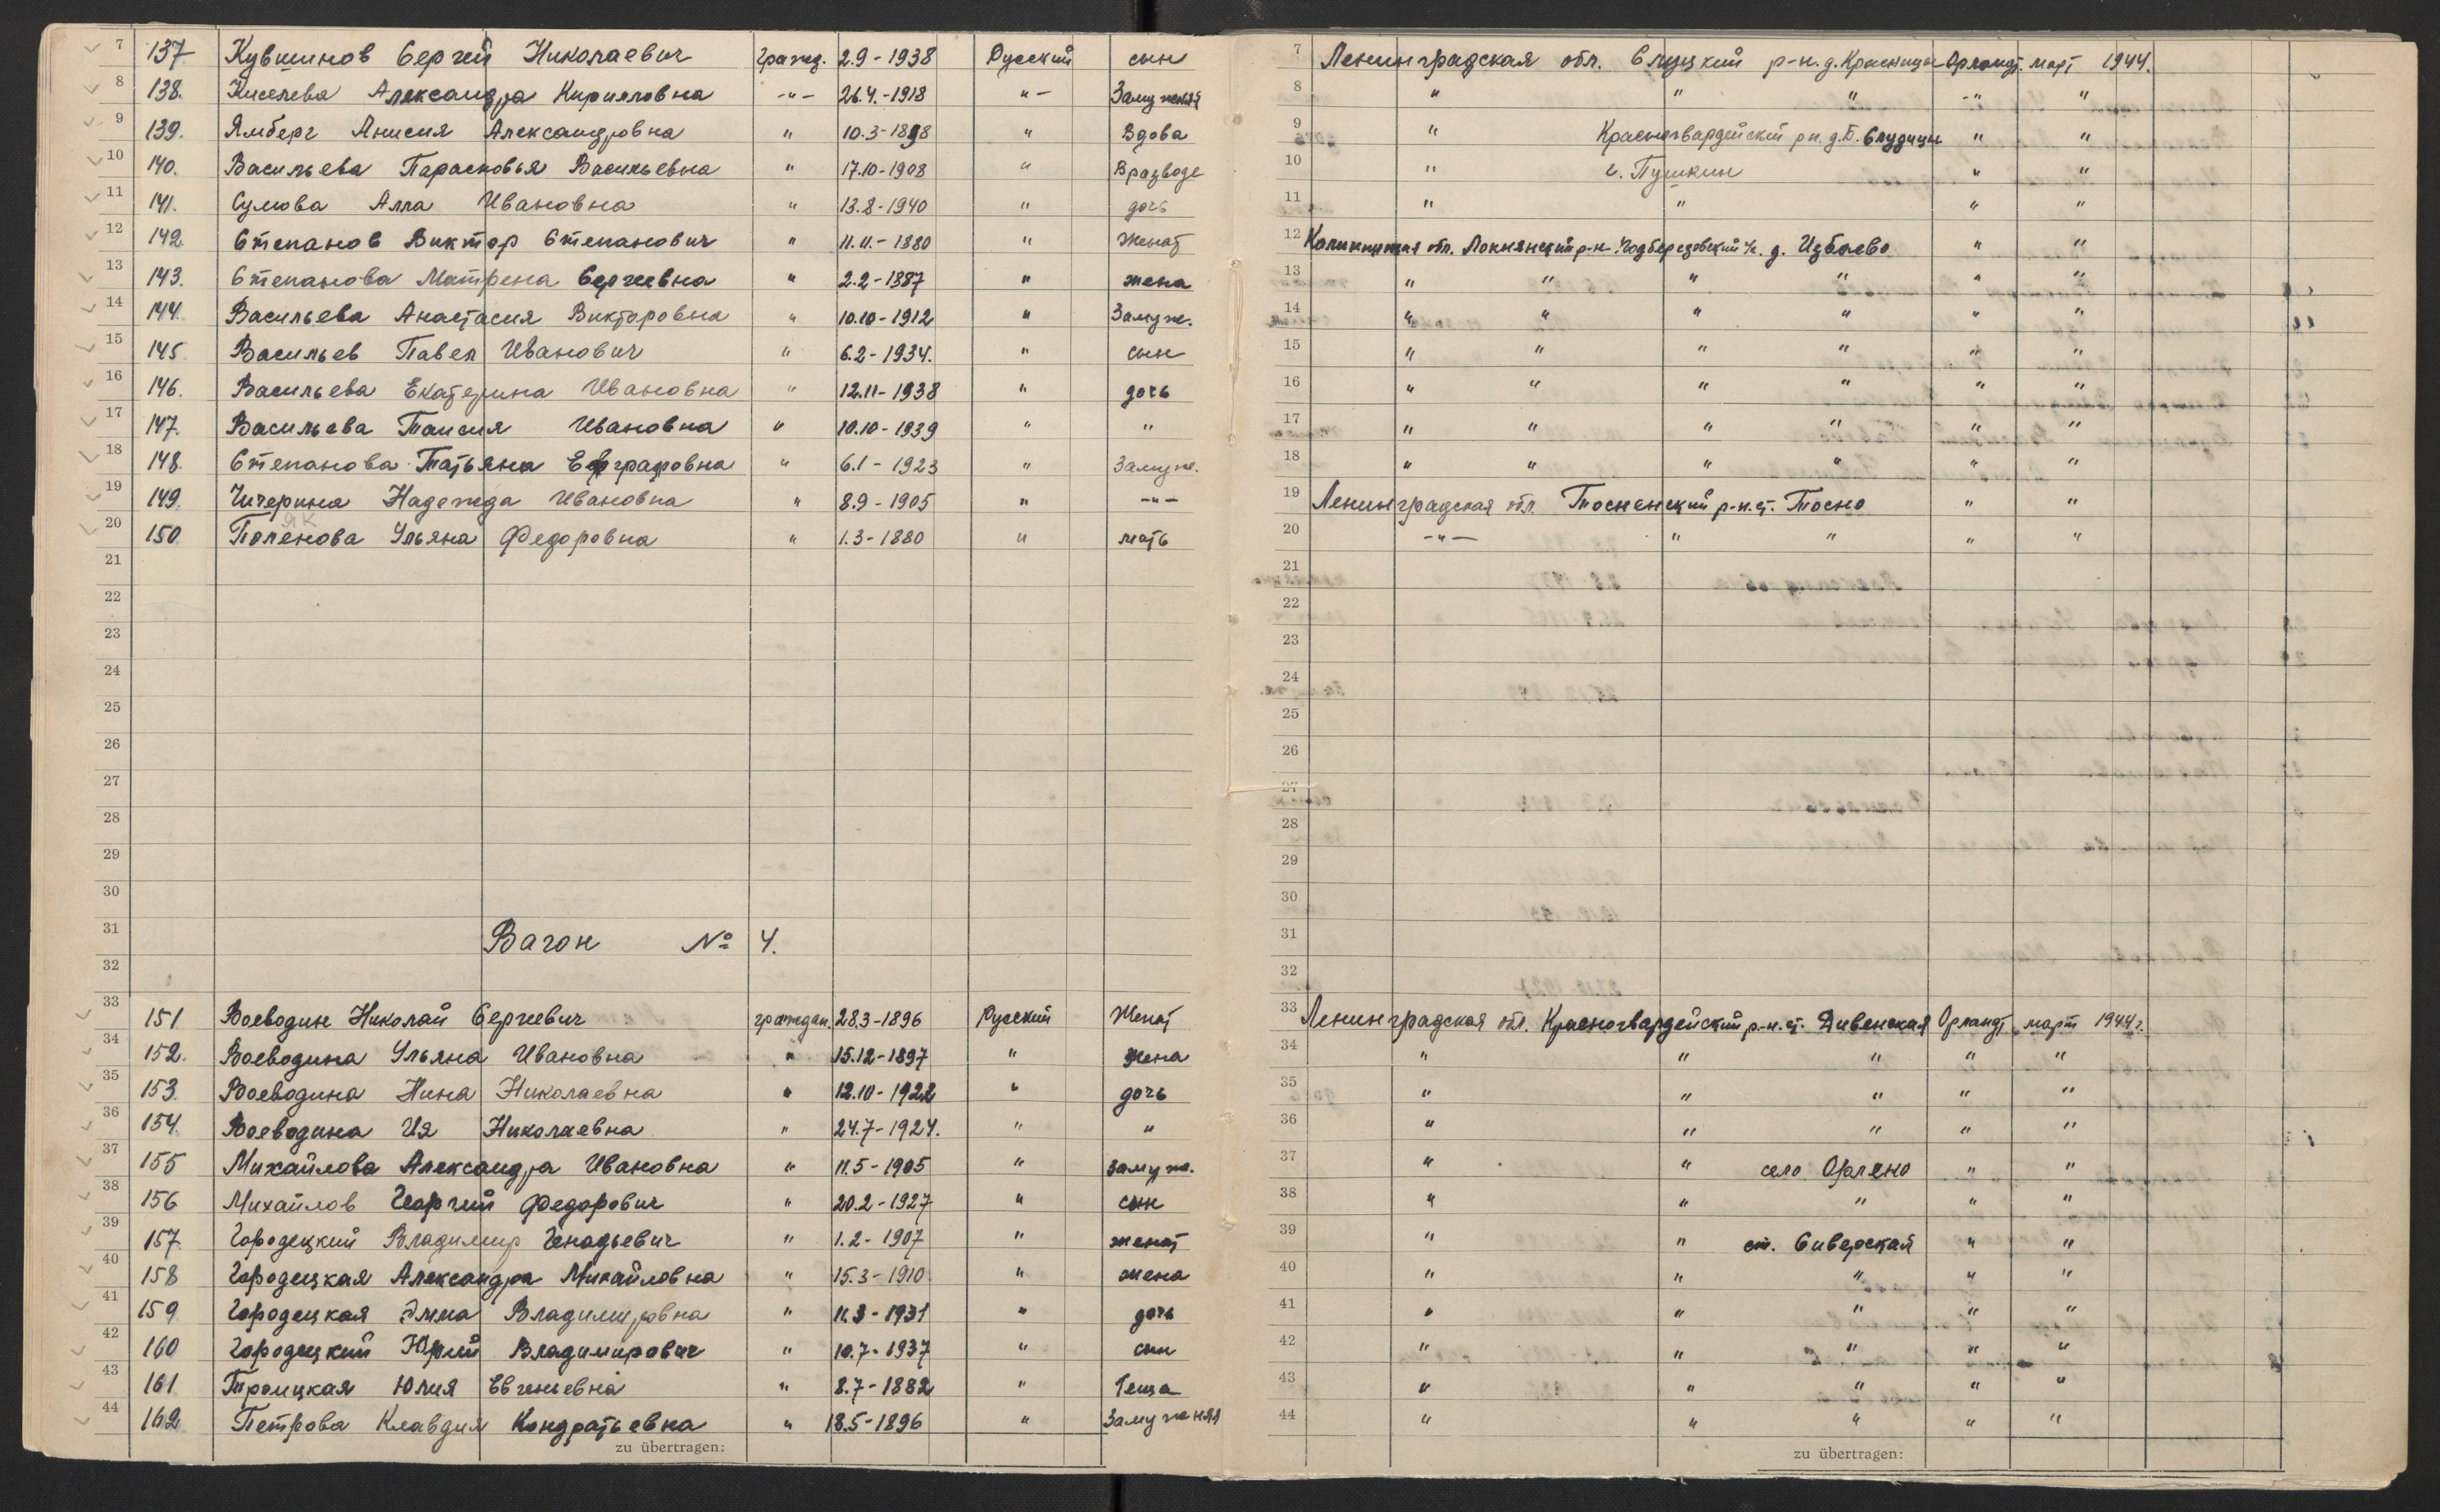 7 137 Кувшинов Сергей Николаевич гражд. 2.9-1938 Русский сын
8 138. Киселева Александра Кирилловна -"- 26.4.-1918 "- Замужняя
9 139. Ямберг Анисия Александровна " 10.3-1898 " Вдова
10 140. Васильева Парасковья Васильевна " 17.10-1908 " В разводе
11 141. Сумова Алла Ивановна " 13.8-1940 " дочь
12 142. Степанов Виктор Степанович " 11.11.-1880 " Женат
13 143. Степанова Матрена Сергеевна " 2.2-1887 " жена
14 144. Васильева Анастасия Викторовна " 10.10-1912 " Замуж.
15 145 Васильев Павел Иванович " 6.2-1934. " сын
16 146. Васильева Екатерина Ивановна " 12.11-1938 " дочь
17 147. Васильева Таисия Ивановна " 10.10-1939 " "
18 148. Степанова Татьяна Евграфовна " 6.1-1923 " Замуж.
19 149. Чичерина Надежда Ивановна " 8.9-1905 " -"-
20 150 Поленова Ульяна Федоровна " 1.3-1880 " мать
21
22
23
24
25
26
27
28
29
30
31 Вагон № 4.
32
33 151 Воеводин Николай Сергеевич граждан. 28.3-1896 Русский Женат
34 152. Воеводина Ульяна Ивановна " 15.12-1897 " Жена
35 153. Воеводина Нина Николаевна " 12.10-1922 " дочь
36 154. Воеводина Ия Николаевна " 24.7-1924. " "
37 155 Михайлова Александра Ивановна " 11.5-1905 " замуж.
38 156 Михайлов Георгий Федорович " 20.2-1927 " сын
39 157. Городецкий Владимир Генадьевич " 1.2-1907 " женат
40 158 Городецкая Александра Михайловна " 15.3-1910 " жена
41 159. Городецкая Эмма Владимировна " 11.3-1931 " дочь
42 160 Городецкий Юрий Владимирович " 10.7-1937 " сын
43 161. Троицкая Юлия Евгеньевна " 8.7-1882 " Теща
44 162. Петрова Клавдия Кондратьевна " 18.5-1896 " Замужняя
zu übertragen:
7 Ленинградская обл. Слуцкий р-н. д. Красницы Орланд. март 1944.
8 " " " -" "
9 " Красногвардейский р-н. д. Б. Слудицы " "
10 " г. Пушкин " "
11 " " " "
12 Калининская обл. Локнянский р-н. Подберезовский с/с. д. Избоево " "
13 " " " " " "
14 " " " " " "
15 " " " " " "
16 " " " " " "
17 " " " " " "
18 " " " " " "
19 Ленинградская обл. Тосненский р-н. ст. Тосно " "
20 -"- " " " "
21
22
23
24
25
26
27
28
29
30
31
32
33 Ленинградская обл. Красногвардейский р-н. ст. Дивенская Орланд март 1944 г.
34 " " " " "
35 " " " " "
36 " " " " "
37 " " село Орлино " "
38 " " " " "
39 " " ст. Сиверская " "
40 " " " " "
41 " " " " "
42 " " " " "
43 " " " " "
44 " " " " "
zu übertragen: